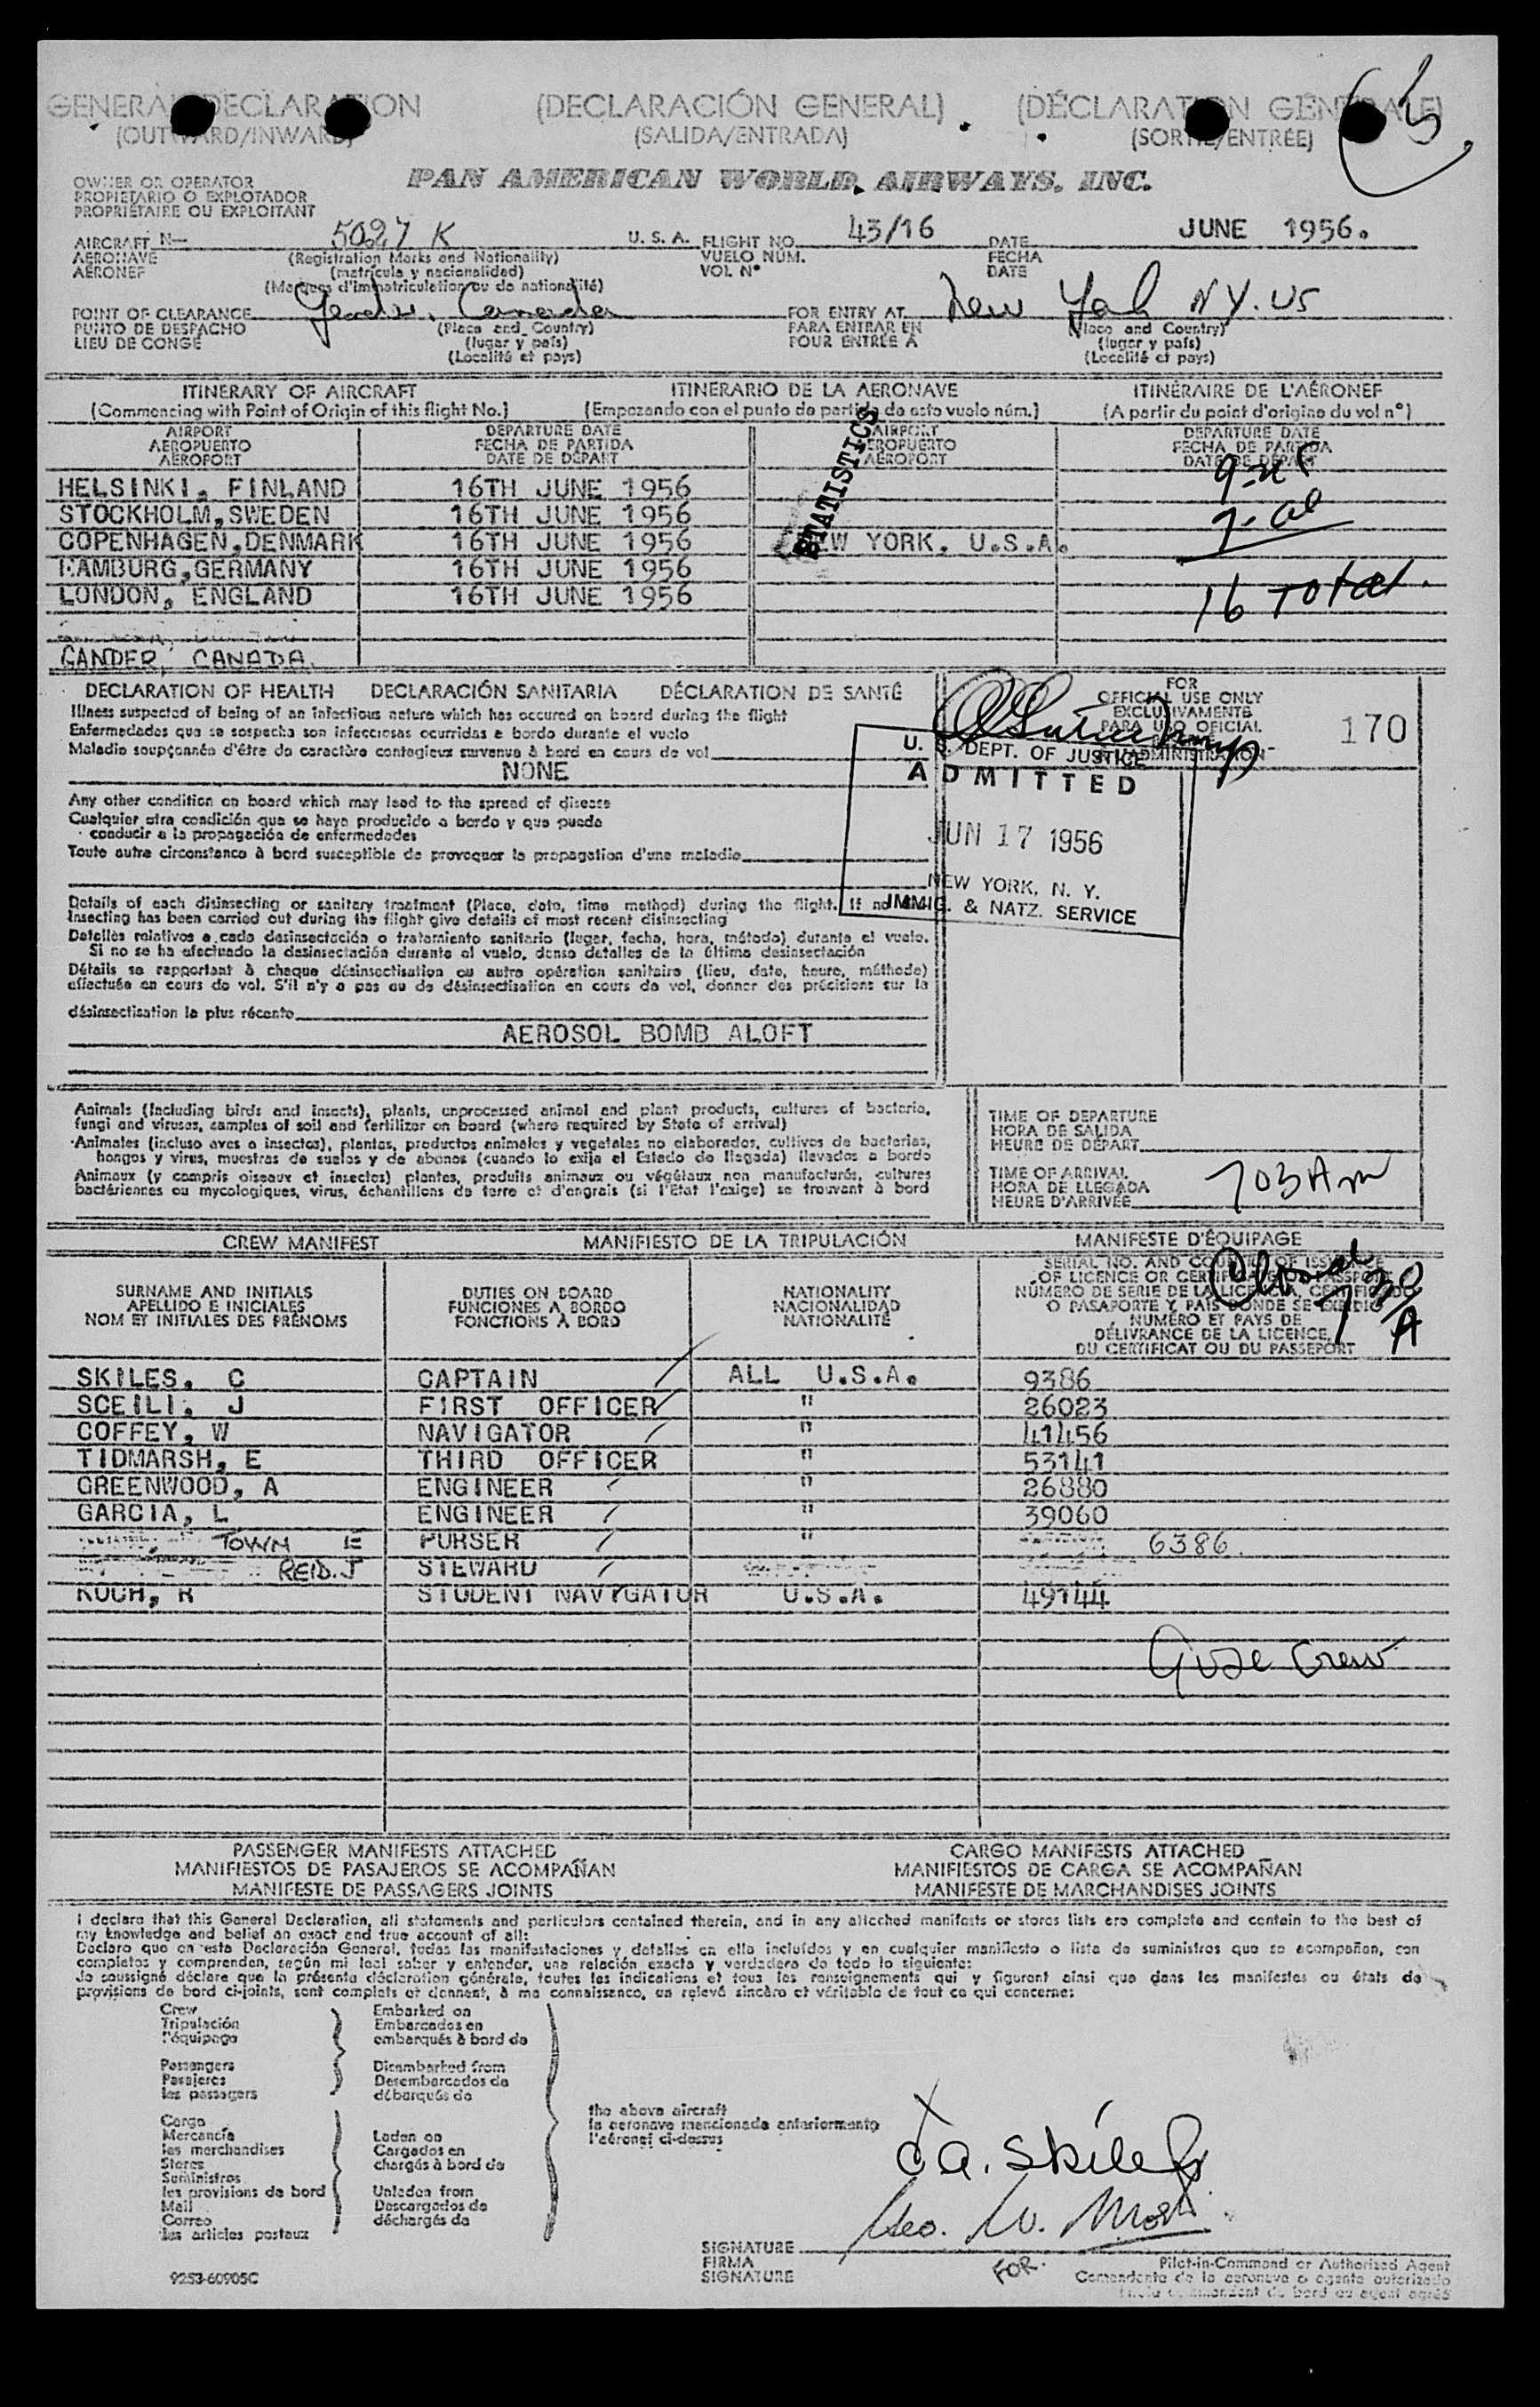 GENERAL DECLARATION (DECLARACIÓN GENERAL) (DÉCLARATION GÉNÉRALE)
(OUTWARD/INWARD) (SALIDA/ENTRADA) (SORTIE/ENTRÉE)
PAN AMERICAN WORLD AIRWAYS, INC.
OWNER OR OPERATOR
PROPIETARIO O EXPLOTADOR
PROPRIÉTAIRE OU EXPLOITANT
AIRCRAFT N- 5027 K U. S. A. FLIGHT NO. 43/16 DATE JUNE 1956.
AERONAVE (Registration Marks and Nationality) VUELO NÚM. FECHA
AÉRONEF (matrícula y nacionalidad) VOL N° DATE
(Marques d'immatriculation ou de nationalité)
POINT OF CLEARANCE Gander, Canada FOR ENTRY AT New York NY. US
PUNTO DE DESPACHO (Place and Country) PARA ENTRAR EN (Place and Country)
LIEU DE CONGÉ (lugar y país) POUR ENTRÉE À (lugar y país)
(Localité et pays) (Localité et pays)
ITINERARY OF AIRCRAFT ITINERARIO DE LA AERONAVE ITINÉRAIRE DE L'AÉRONEF
(Commencing with Point of Origin of this flight No.) (Empezando con el punto de partida de este vuelo núm.) (A partir du point d'origine du vol n°)
AIRPORT DEPARTURE DATE AIRPORT DEPARTURE DATE
AEROPUERTO FECHA DE PARTIDA AEROPUERTO FECHA DE PARTIDA
AÉROPORT DATE DE DÉPART AÉROPORT DATE DE DÉPART
STATISTICS
HELSINKI, FINLAND 16TH JUNE 1956
STOCKHOLM, SWEDEN 16TH JUNE 1956
COPENHAGEN, DENMARK 16TH JUNE 1956 NEW YORK, U.S.A.
HAMBURG, GERMANY 16TH JUNE 1956
LONDON, ENGLAND 16TH JUNE 1956 16 Total.
GANDER, CANADA.
DECLARATION OF HEALTH DECLARACIÓN SANITARIA DÉCLARATION DE SANTÉ
Illness suspected of being of an infectious nature which has occured on board during the flight
Enfermedades que se sospecha son infecciosas ocurridas a bordo durante el vuelo
Maladie soupçonnée d'être de caractère contagieux survenue à bord en cours de vol
NONE
FOR
OFFICIAL USE ONLY
EXCLUSIVAMENTE
PARA USO OFICIAL
170
U. S. DEPT. OF JUSTICE
ADMITTED
JUN 17 1956
NEW YORK, N. Y.
IMMIG. & NATZ. SERVICE
Any other condition on board which may lead to the spread of disease
Cualquier otra condición que se haya producido a bordo y que pueda
conducir a la propagación de enfermedades
Toute autre circonstance à bord susceptible de provoquer la propagation d'une maladie
Details of each disinsecting or sanitary treatment (Place, date, time method) during the flight. If no
insecting has been carried out during the flight give details of most recent disinsecting
Detalles relativos a cada desinsectación o tratamiento sanitario (lugar, fecha, hora, método) durante el vuelo.
Si no se ha efectuado la desinsectación durante el vuelo, denso detalles de la última desinsectación
Détails se rapportant à chaque désinsectisation ou autre opération sanitaire (lieu, date, heure, méthode)
effectuée en cours de vol. S'il n'y a pas eu de désinsectisation en cours de vol, donner des précisions sur la
désinsectisation la plus récente
AEROSOL BOMB ALOFT
Animals (Including birds and insects), plants, unprocessed animal and plant products, cultures of bacteria,
fungi and viruses, samples of soil and fertilizer on board (where required by State of arrival)
Animales (incluso aves e insectos), plantas, productos animales y vegetales no elaborados, cultivos de bacterias,
hongos y virus, muestras de suelos y de abonos (cuando lo exija el Estado de llegada) llevados a bordo
Animaux (y compris oiseaux et insectes) plantes, produits animaux ou végétaux non manufacturés, cultures
bactériennes ou mycologiques, virus, échantillons de terre et d'engrais (si l'Etat l'exige) se trouvant à bord
TIME OF DEPARTURE
HORA DE SALIDA
HEURE DE DÉPART
TIME OF ARRIVAL
HORA DE LLEGADA 703 Am
HEURE D'ARRIVÉE
CREW MANIFEST MANIFIESTO DE LA TRIPULACIÓN MANIFESTE D'ÉQUIPAGE
SURNAME AND INITIALS DUTIES ON BOARD NATIONALITY
APELLIDO E INICIALES FUNCIONES A BORDO NACIONALIDAD
NOM ET INITIALES DES PRÉNOMS FONCTIONS À BORD NATIONALITÉ
SERIAL NO. AND COUNTRY OF ISSUANCE
OF LICENCE OR CERTIFICATE OR PASSPORT
NÚMERO DE SERIE DE LA LICENCIA, CERTIFICADO
O PASAPORTE Y PAÍS DONDE SE EXPIDIÓ
NUMÉRO ET PAYS DE
DÉLIVRANCE DE LA LICENCE,
DU CERTIFICAT OU DU PASSEPORT
SKILES, C CAPTAIN ALL U.S.A. 9386
SCEILI, J FIRST OFFICER " 26023
COFFEY, W NAVIGATOR " 41456
TIDMARSH, E THIRD OFFICER " 53141
GREENWOOD, A ENGINEER " 26880
GARCIA, L ENGINEER " 39060
TOWN E PURSER " 6386.
REID. J STEWARD
KOCH, R STUDENT NAVIGATOR U.S.A. 49144
Crew
PASSENGER MANIFESTS ATTACHED CARGO MANIFESTS ATTACHED
MANIFIESTOS DE PASAJEROS SE ACOMPAÑAN MANIFIESTOS DE CARGA SE ACOMPAÑAN
MANIFESTE DE PASSAGERS JOINTS MANIFESTE DE MARCHANDISES JOINTS
I declare that this General Declaration, all statements and particulars contained therein, and in any attached manifests or stores lists are complete and contain to the best of
my knowledge and belief an exact and true account of all:
Declaro que en esta Declaración General, todas las manifestaciones y detalles en ella incluídos y en cualquier manifiesto o lista de suministros que se acompañan, son
completos y comprenden, según mi leal saber y entender, una relación exacta y verdadera de todo lo siguiente:
Je soussigné déclare que la présente déclaration générale, toutes les indications et tous les renseignements qui y figurent ainsi que dans les manifestes ou états de
provisions de bord ci-joints, sont complets et donnent, à ma connaissance, un relevé sincère et véritable de tout ce qui concerne:
Crew Embarked on
Tripulación Embarcados en
l'équipage embarqués à bord de
Passengers Disembarked from
Pasajeros Desembarcados de
les passagers débarqués de
the above aircraft
la aeronave mencionada anteriormente
l'aéronef ci-dessus
Cargo
Mercancía Laden on
les marchandises Cargados en
Stores chargés à bord de
Suministros
les provisions de bord Unladen from
Mail Descargados de
Correo déchargés de
les articles postaux
C a. Skiles
Geo. W.
SIGNATURE
FIRMA FOR. Pilot-in-Command or Authorized Agent
SIGNATURE Comandante de la aeronave o agente autorizado
9253-60905C